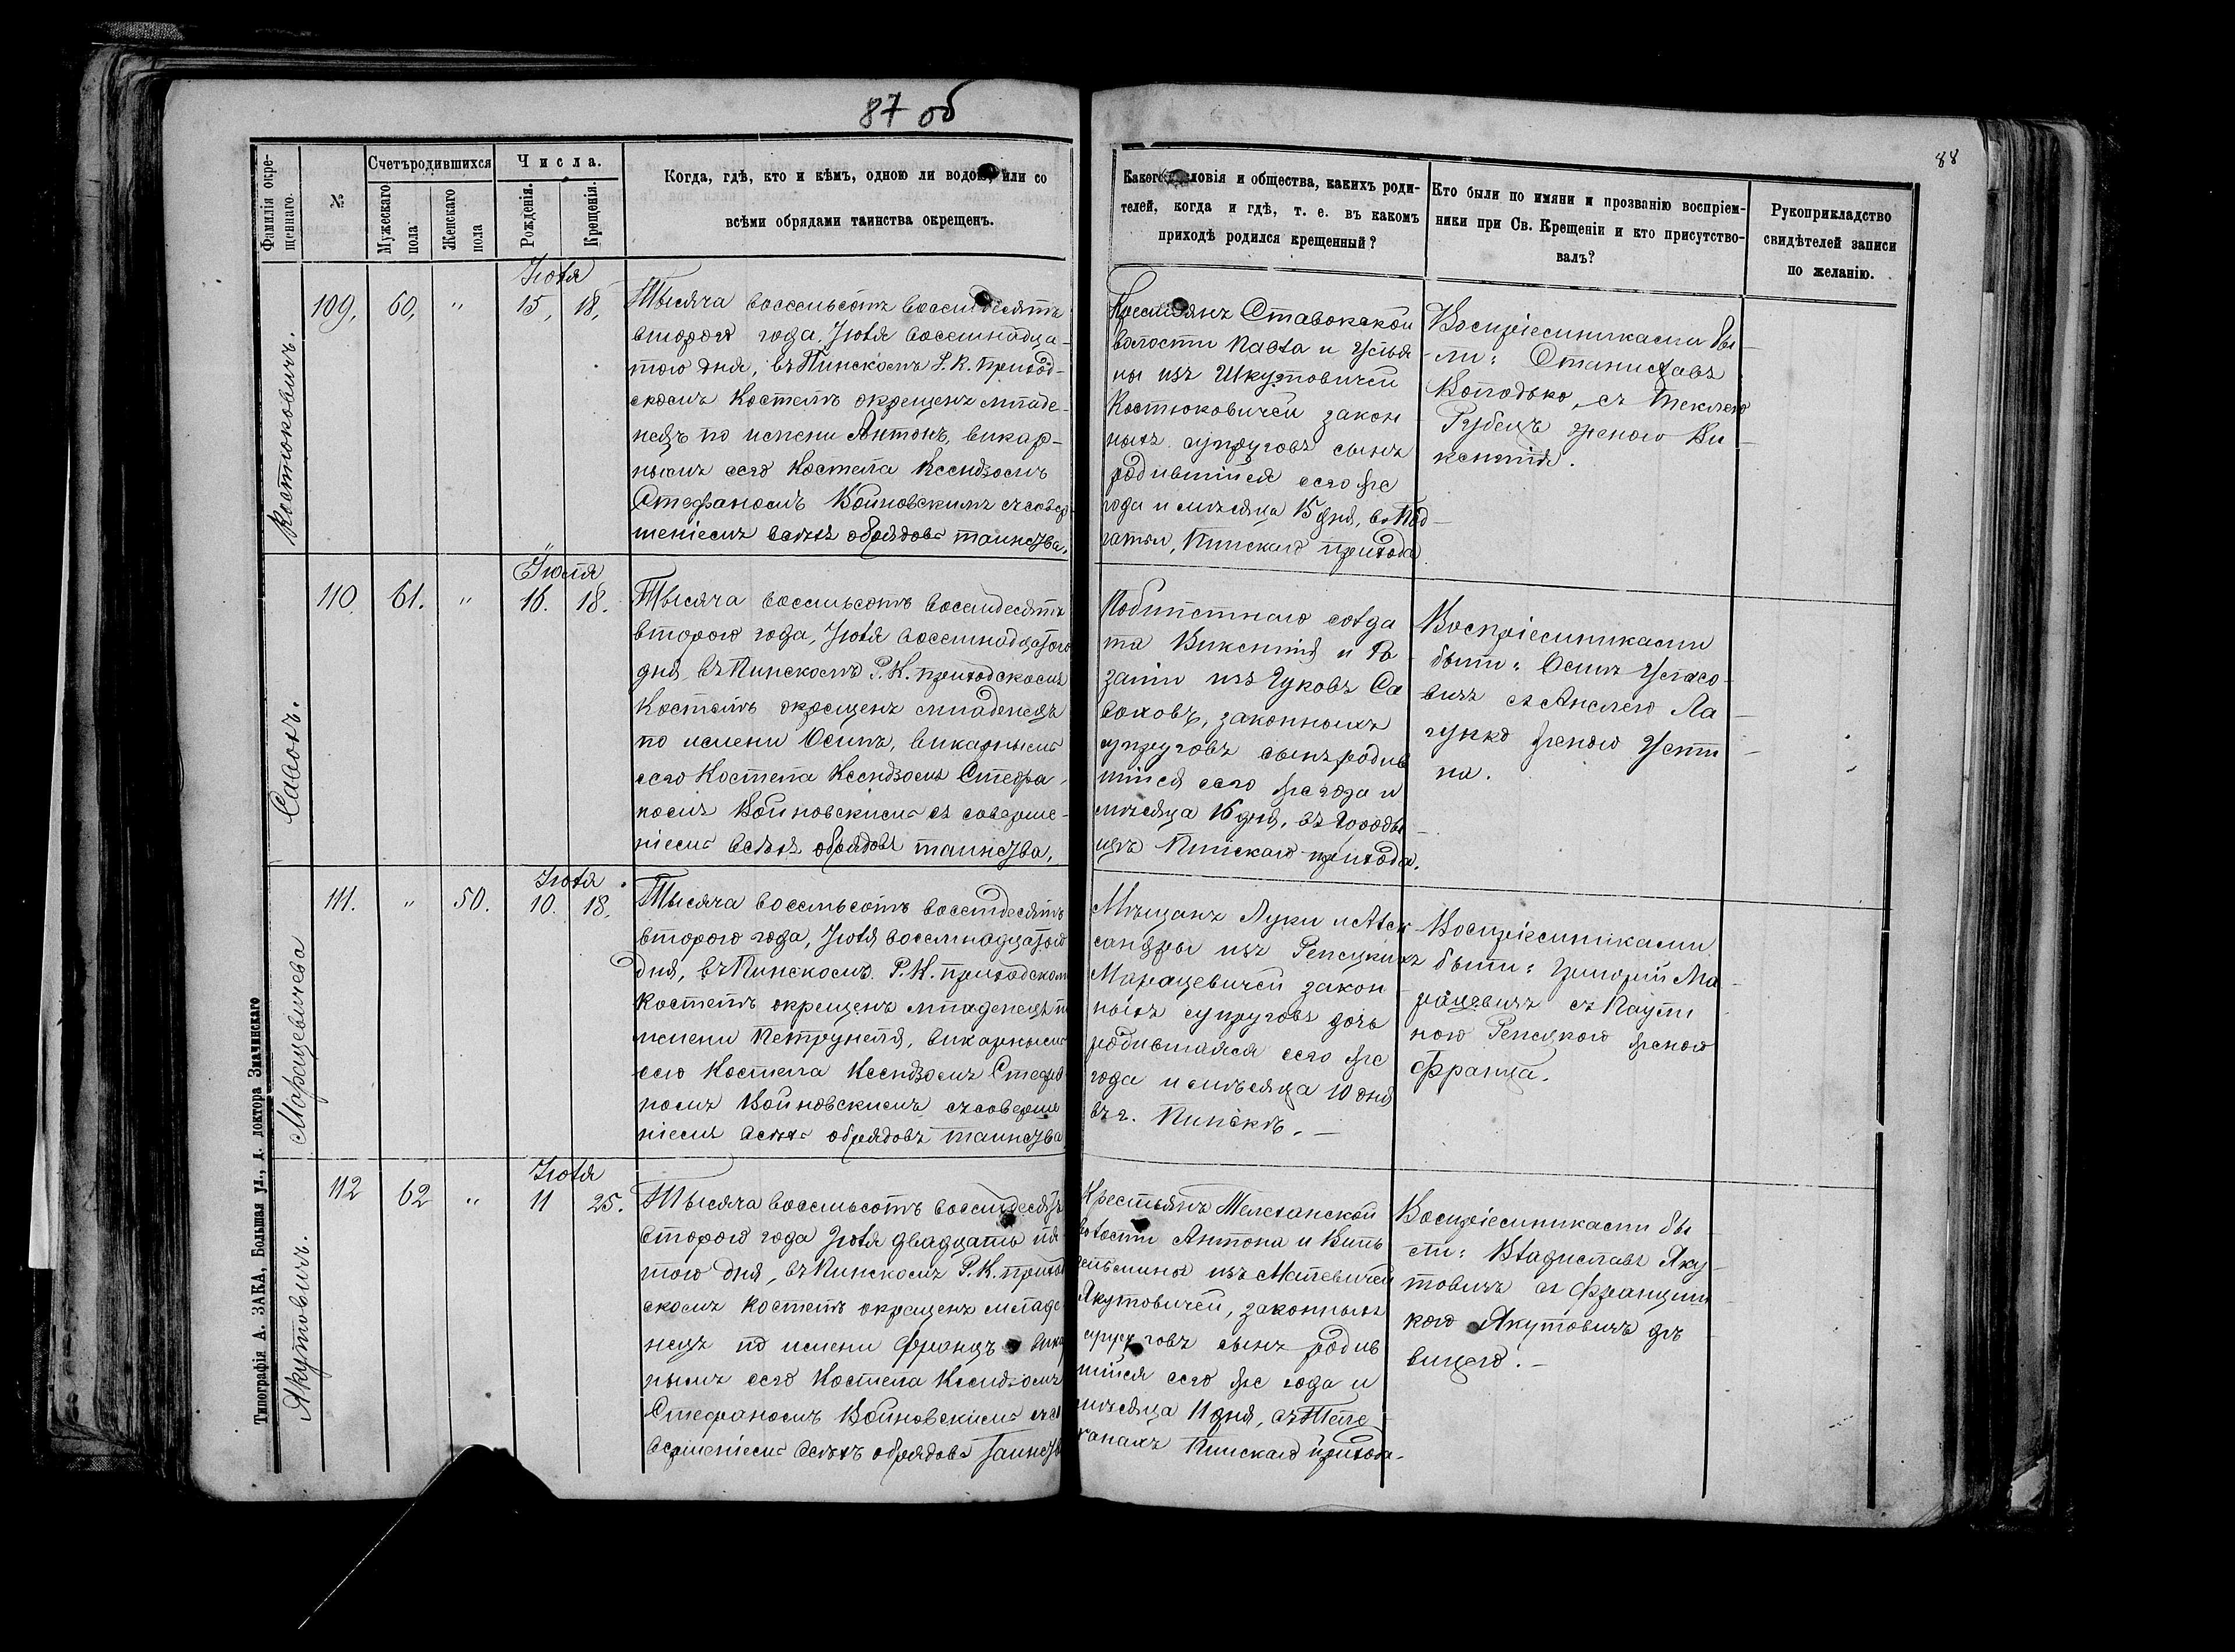 87 об
88
Фамилія окре-
щеннаго.
№
Счетъродившихся
Мужескаго
пола
Женскаго
пола
Числа.
Рожденія.
Крещенія.
Когда, гдѣ, кто и кѣмъ, одною ли водою, или со
всѣми обрядами таинства окрещенъ.
Какого словія и общества, какихъ роди-
телей, когда и гдѣ, т. е. въ какомъ
приходѣ родился крещенный?
Кто были по имяни и прозванію воспріем-
ники при Св. Крещеніи и кто присутство-
валъ?
Рукоприкладство
свидѣтелей записи
по желанію.
Костюковичъ.
109.
60.
"
Іюля
15, 18,
Тысяча восемьсотъ восемдесятъ
второго года, Іюля восемнадца-
того дня, въ Пинскомъ Р. К. приход-
скомъ Костелѣ окрещенъ младе-
нецъ по имени Антонъ, викар-
нымъ сего Костела Ксендзомъ
Стефаномъ Войновскимъ съ совер-
шеніемъ всѣхъ обрядовъ таинства,
Крестьянъ Ставокской
волости Павла и Устья
ны изъ Шкутовичей
Костюковичей закон
ныхъ супруговъ сынъ
родившійся сего же
года и мѣсяца 15 дня, въ Под-
гатьи, Пинскаго прихода
Воспріемниками бы-
ли: Станиславъ
Колодько, съ Теклею
Рубецъ женою Ви-
кентія.
Савохъ.
110.
61.
"
Іюля
16. 18.
Тысяча восемьсотъ восемдесятъ
второго года, Іюля восемнадцатого
дня, въ Пинскомъ Р. К. приходскомъ
Костелѣ окрещенъ младенецъ
по имени Осипъ, викарнымъ
сего Костела Ксендзомъ Стефа-
номъ Войновскимъ съ соверше-
ніемъ всѣхъ обрядовъ таинства,
солда
та Викентія и Ро
заліи изъ Чуковъ Са
воховъ, законныхъ
супруговъ сынъ родив
шійся сего же года и
мѣсяца 16 дня, въ Городи
щѣ Пинскаго прихода.
Воспріемниками
были: Осипъ
вичъ съ Анелею Ла
гунко женою Усти
на.
Морацевичева
111.
"
50.
Іюля
10. 18.
Тысяча восемьсотъ восемдесятъ
второго года, Іюля восемнадцатого
дня, въ Пинскомъ Р. К. приходском
Костелѣ окрещенъ младенецъ п
имени Петрунеля, викарнымъ
сего Костела Ксендзомъ Стефа
номъ Войновскимъ съ соверше
ніемъ всѣхъ обрядовъ таинства
Мѣщанъ Луки и Алек
сандры изъ Репецкихъ
Морацевичей закон
ныхъ супруговъ дочь
родившаяся сего же
года и мѣсяца 10 дня
въ г. Пинскѣ. —
Воспріемниками
были: Григорій Мо
рацевичъ съ Паули
ною Репецкою женою
Франца.
Якутовичъ.
112
62
"
Іюля
11 25.
Тысяча восемьсотъ восемдесятъ
второго года Іюля двадцать пя
того дня, въ Пинскомъ Р. К. приход
скомъ Костелѣ окрещенъ младе
нецъ по имени Францъ викар
нымъ сего Костела Ксендзомъ
Стефаномъ Войновскимъ съ со
вершеніемъ всѣхъ обрядовъ таинств
Крестьянъ Телеханской
волости Антона и Виль
гельмины изъ Малевичей
Якутовичей, законныхъ
супруговъ сынъ родив
шійся сего же года и
мѣсяца 11 дня, въ Теле
ханахъ Пинскаго прихода.
Воспріемниками бы
ли: Владиславъ Яку-
товичъ съ Францишк
кою Якутовичъ дѣ
вицею. —
Типографія А. ЗАКА, Большая ул., д. доктора Значинскаго